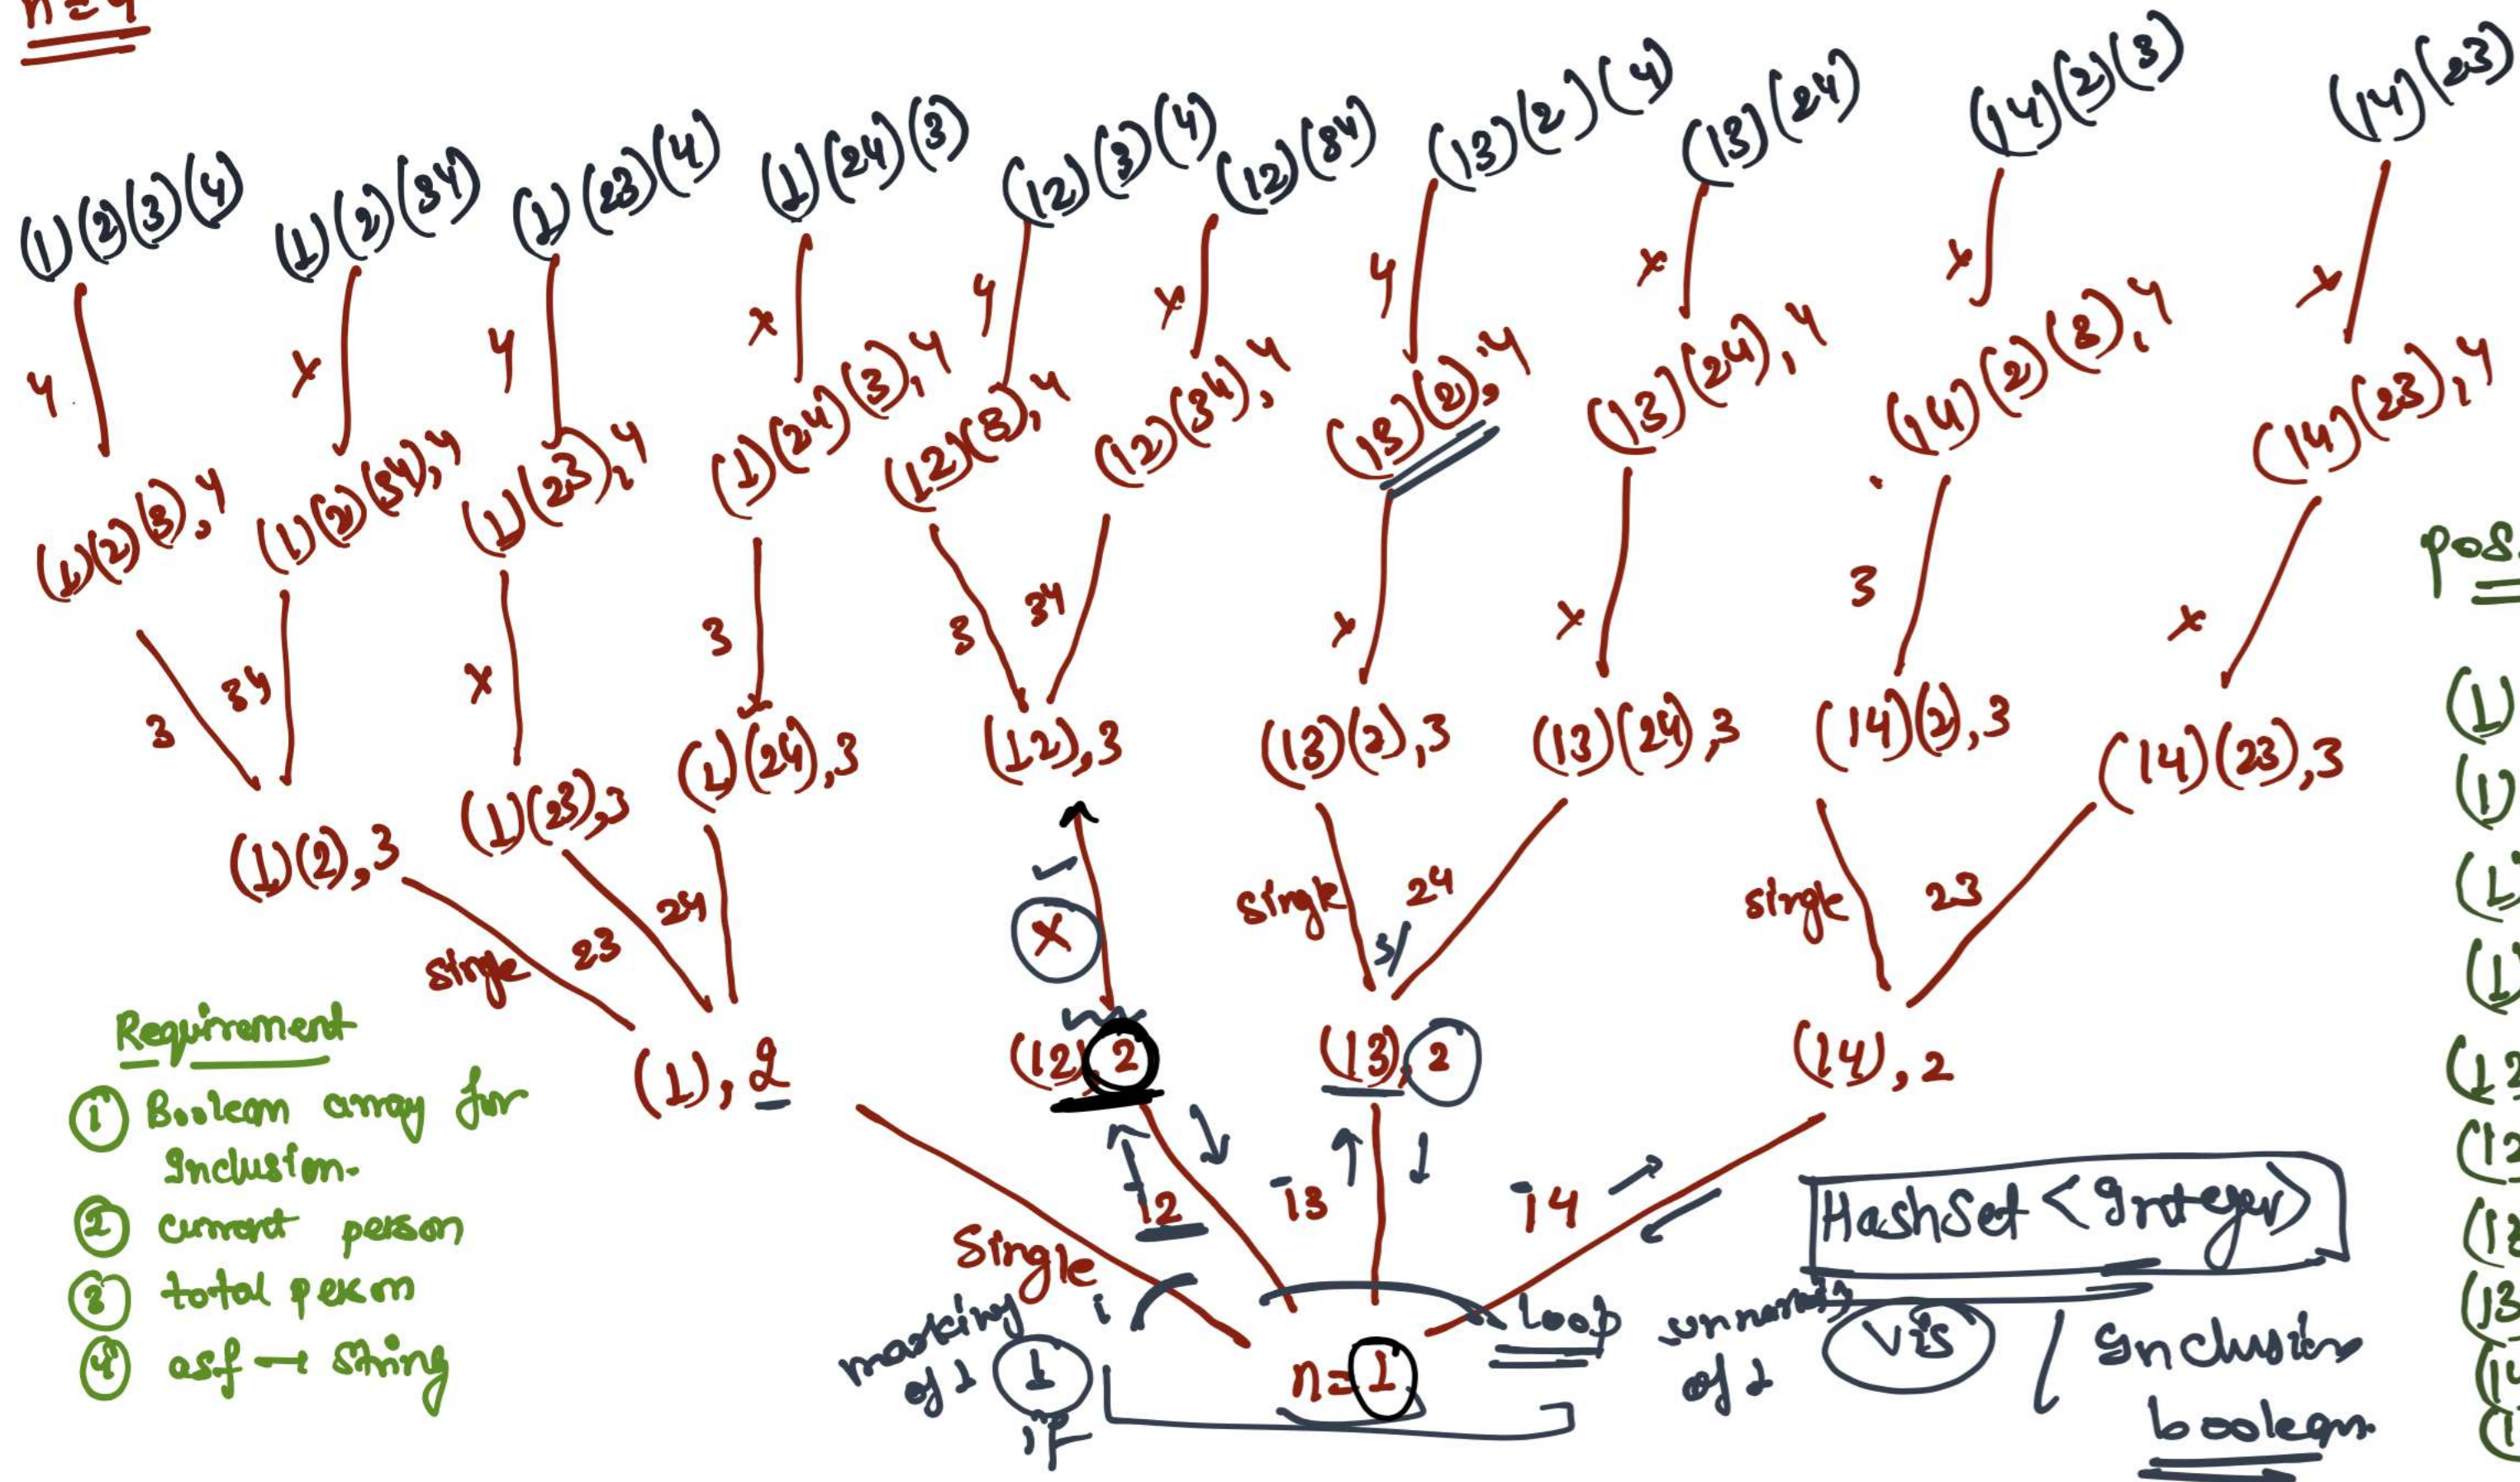 n=4
(1)(2)(3)(4)
(1)(2)(34)
(1)(23)(4)
(1)(24)(3)
(12)(3)(4)
(12)(34)
(13)(2)(4)
(13)(24)
(14)(2)(3)
(14)(23)
4
x
4
x
4
x
4
x
x
x
(1)(2)(3),4
(1)(2)(34),4
(1)(23),4
(1)(24)(3),4
(12)(3),4
(12)(34),4
(13)(2),4
(13)(24),4
(14)(2)(3),4
(14)(23),4
3
34
x
3
3
34
x
x
3
x
(1)(2),3
(1)(23),3
(1)(24),3
(12),3
(13)(2),3
(13)(24),3
(14)(2),3
(14)(23),3
single
23
24
x
single
24
3/
single
23
(1),2
(12),2
(13),2
(14),2
Single
12
13
14
marking
of 1
1
if
i
n=1
loop
of 1
HashSet<Integer>
Vis
/
Inclusion
boolean
Requirement
1 Boolean array for
Inclusion.
2 current person
3 total person
4 asf → String
pos
(1)
(1)
(1
(1)
(12
(12
(13
(13
(14
(1